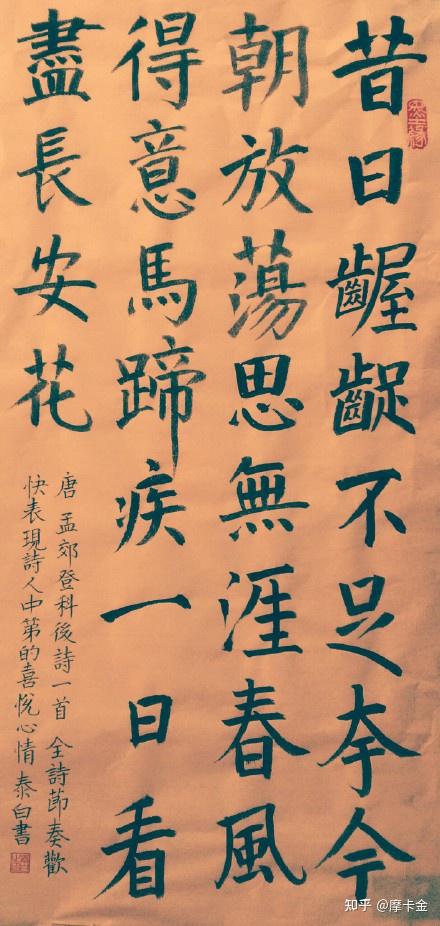 昔日齷齪不足夸今
朝放蕩思無涯春風
得意馬蹄疾一日看
盡長安花
唐 孟郊登科後詩一首 全詩節奏歡
快表現詩人中第的喜悅心情 泰白書
知乎 @摩卡金